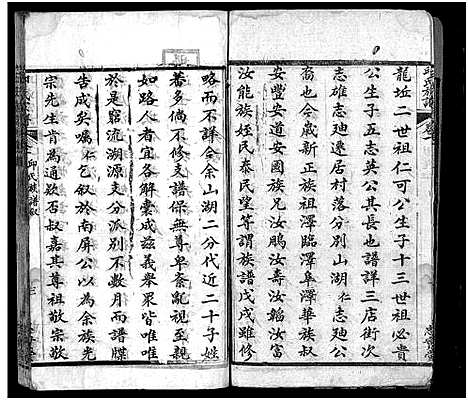 龍坵二世祖仁可公生子十三世祖必貴
公生子五志英公其長也譜詳三店街次
志雄志廸遷居村落分別山湖仁志廸公
裔也今歲新正族祖澤臨澤阜澤華族叔
安豐安道安國族兄汝鵬汝壽汝韜汝富
汝能族姪民泰民望等謂族譜戊戌雖修
略而不詳合余山湖二分代近二十子姓
蕃多倘不修支譜保無尊卑紊亂視至親
如路人者宜各解囊成茲義舉眾皆唯唯
於是窮流溯源支分派別不數月而譜牒
告成矣囑仁乞叙於南屏公以為余族光
宗先生肯為通歎否叔嘉其尊祖敬宗敬
邱氏族譜叙